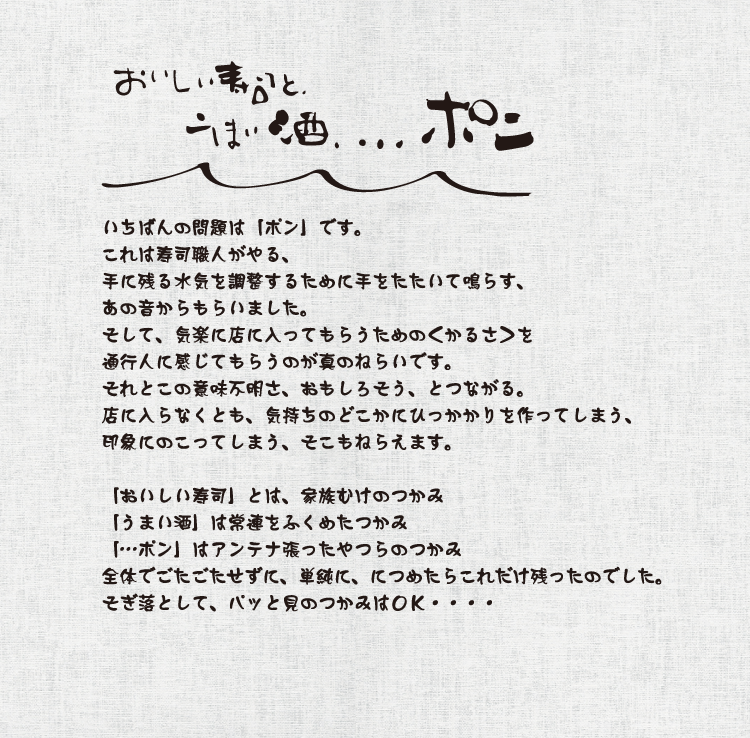 おいしい寿司と、
うまい酒、・・・・ポン
いちばんの問題は「ポン」です。
これは寿司職人がやる、
手に残る水気を調整するために手をたたいて鳴らす、
あの音からもらいました。
そして、気楽に店に入ってもらうための<かるさ>を
通行人に感じてもらうのが真のねらいです。
それとこの意味不明さ、おもしろそう、とつながる。
店に入らなくとも、気持ちのどこかにひっかかりを作ってしまう、
印象にのこってしまう、そこもねらえます。
「おいしい寿司」とは、家族むけのつかみ
「うまい酒」は常連をふくめたつかみ
「…ポン」はアンテナ張ったやつらのつかみ
全体でごたごたせずに、単純に、につめたらこれだけ残ったのでした。
そぎ落として、パッと見のつかみはOK・・・・